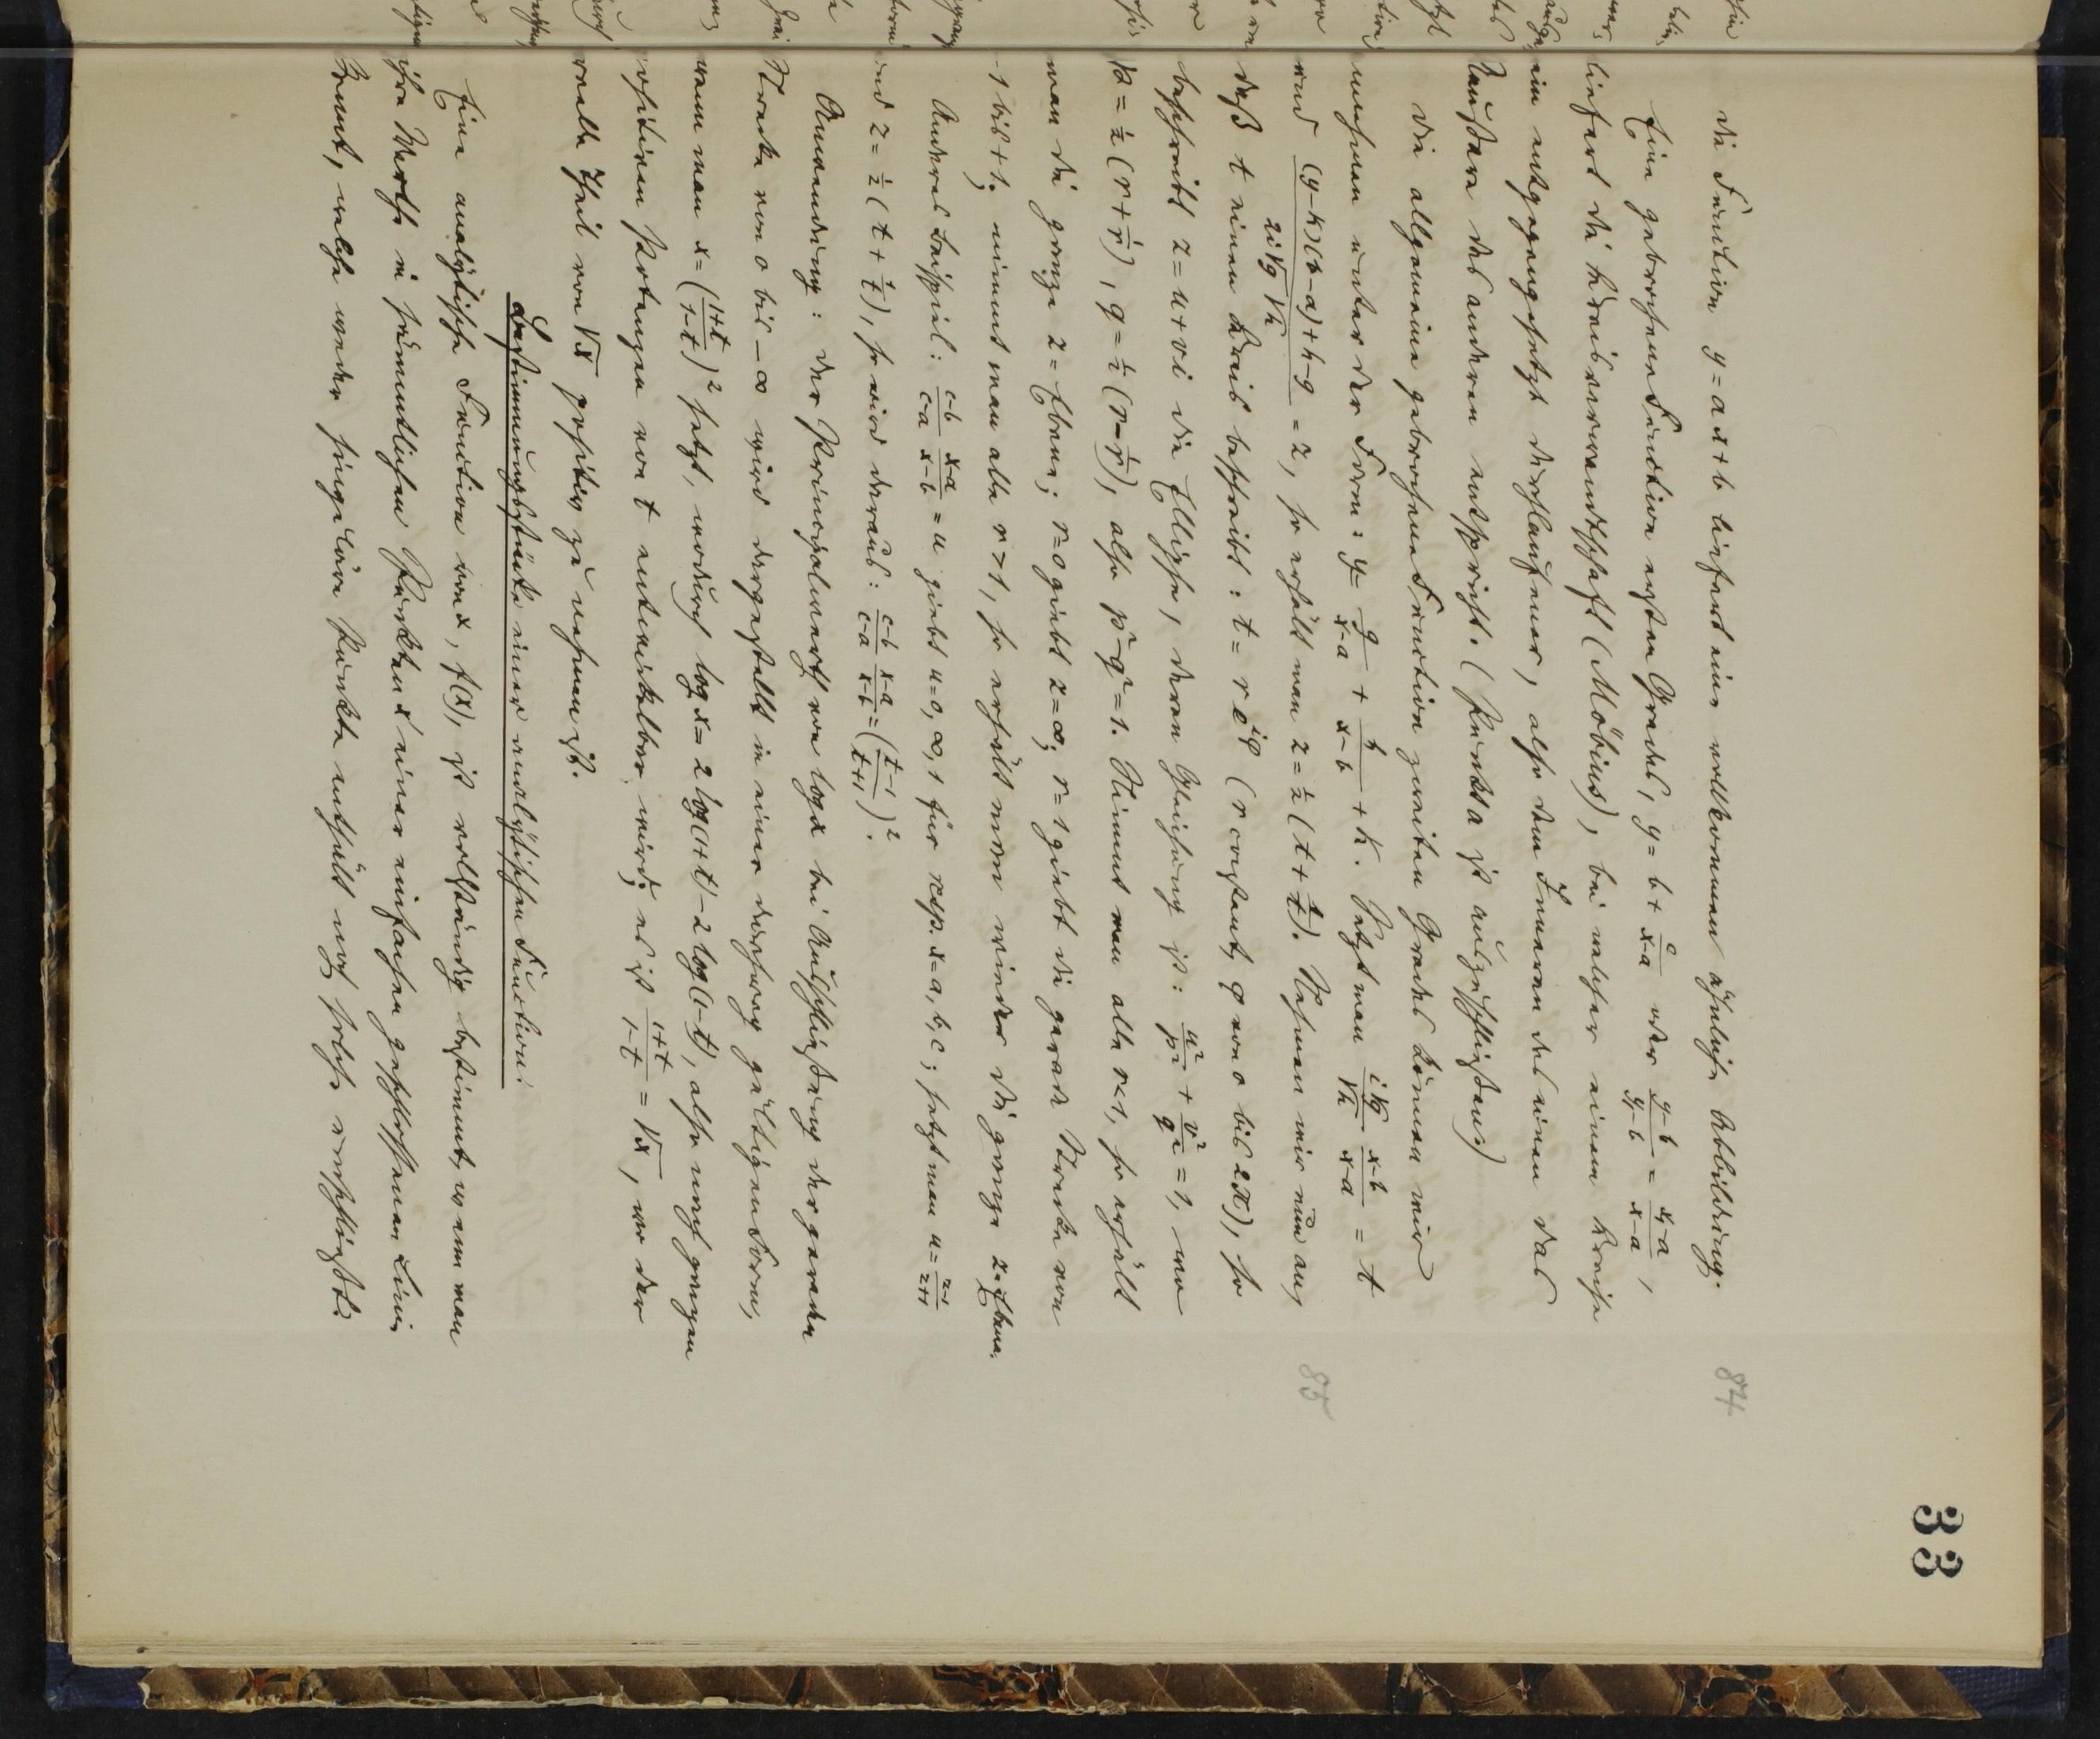 33
84
die Function y = ax + b liefert eine vollkommen ähnliche Abbildung.
Eine gebrochene Function ersten Grades, y = b + c/(x-a) oder (y-b)/(y₁-b) = (x₁-a)/(x-a),
liefert die Kreisverwandtschaft (Möbius), bei welcher einem Kreise
ein entgegengesetzt durchlaufener, also dem Inneren des einen das
Äußere des anderen entspricht. (Punkt a ist auszuschließen)
Die allgemeine gebrochene Function zweiten Grades können wir
nehmen unter der Form: y = g/(x-a) + h/(x-b) + k. Setzt man i√g/√h (x-b)/(x-a) = t
und ((y-k)(b-a)+h-g)/(2i√g√h) = z, so erhält man z = ½(t + 1/t). Nehmen wir nun an, 85
daß t einen Kreis beschreibt: t = r e^{iφ} (r constant, φ von 0 bis 2π), so
beschreibt z = u + vi die Ellipse, deren Gleichung ist: u²/p² + v²/q² = 1, wo
p = ½(r + 1/r), q = ½(r - 1/r), also p² - q² = 1. Nimmt man alle r < 1, so erhält
man die ganze z = Ebene; r = 0 giebt z = ∞, r = 1 giebt die gerade Strecke von
-1 bis +1; nimmt man alle r > 1, so erhält man wieder die ganze z = Ebene.
Anderes Beispiel: (c-b)/(c-a) (x-a)/(x-b) = u giebt u = 0, ∞, 1 für resp. x = a, b, c; setzt man u = (z-1)/(z+1)
und z = ½(t + 1/t), so wird daraus: (c-b)/(c-a) (x-a)/(x-b) = ((t-1)/(t+1))².
Anwendung: Der Principalwerth von log x bei Ausschließung der geraden
Strecke von 0 bis -∞ wird dargestellt in einer durchweg gültigen Form,
wenn man x = ((1+t)/(1-t))² setzt, wodurch log x = 2 log(1+t) - 2 log(1-t), also nach ganzen
positiven Potenzen von t entwickelbar wird; es ist (1+t)/(1-t) = √x, wo der
reelle Theil von √x positiv zu nehmen ist.
Bestimmungsstücke einer analytischen Function.
Eine analytische Function von x, f(x), ist vollständig bestimmt, wenn man
ihre Werthe in sämmtlichen Punkten x einer einfachen geschlossenen Linie
kennt, welche weder singuläre Punkte enthält noch solche einschließt.